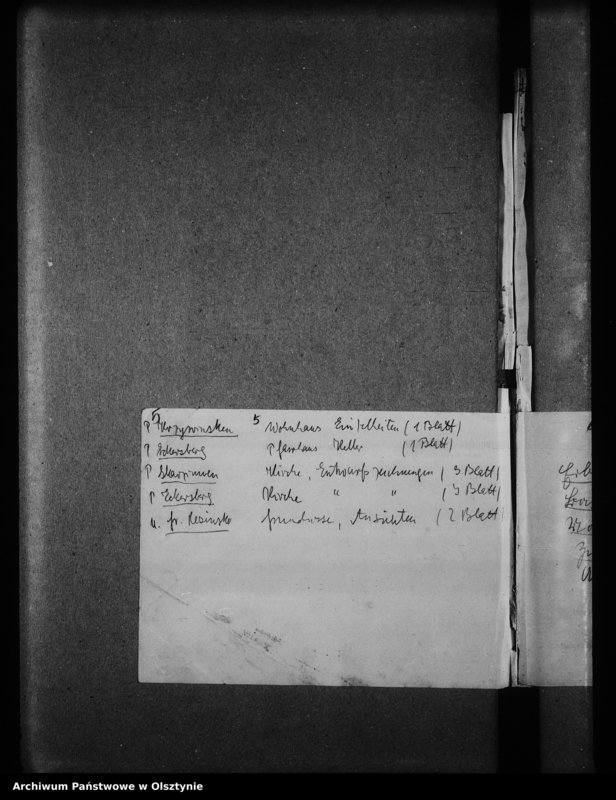 5
P Krzywinsken 5 Wohnhaus Einzelheiten (1 Blatt)
P Eckersberg Pfarrhaus Keller (1 Blatt)
P Skarzinnen Kirche, Entwurfszeichnungen (3 Blatt)
P Eckersberg Kirche " " (3 Blatt)
u. Gr. Grundrisse, Ansichten (2 Blatt
Archiwum Państwowe w Olsztynie